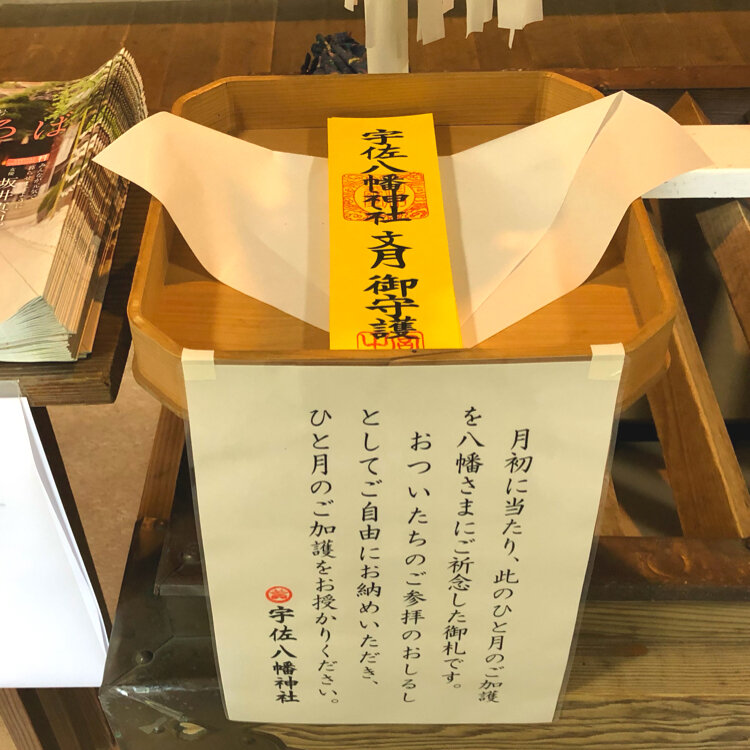 宇佐八幡神社 文月 御守護
月初に当たり、此のひと月のご加護
を八幡さまにご祈念した御札です。
おついたちのご参拝のおしるし
としてご自由にお納めいただき、
ひと月のご加護をお授かりください。
宇佐八幡神社